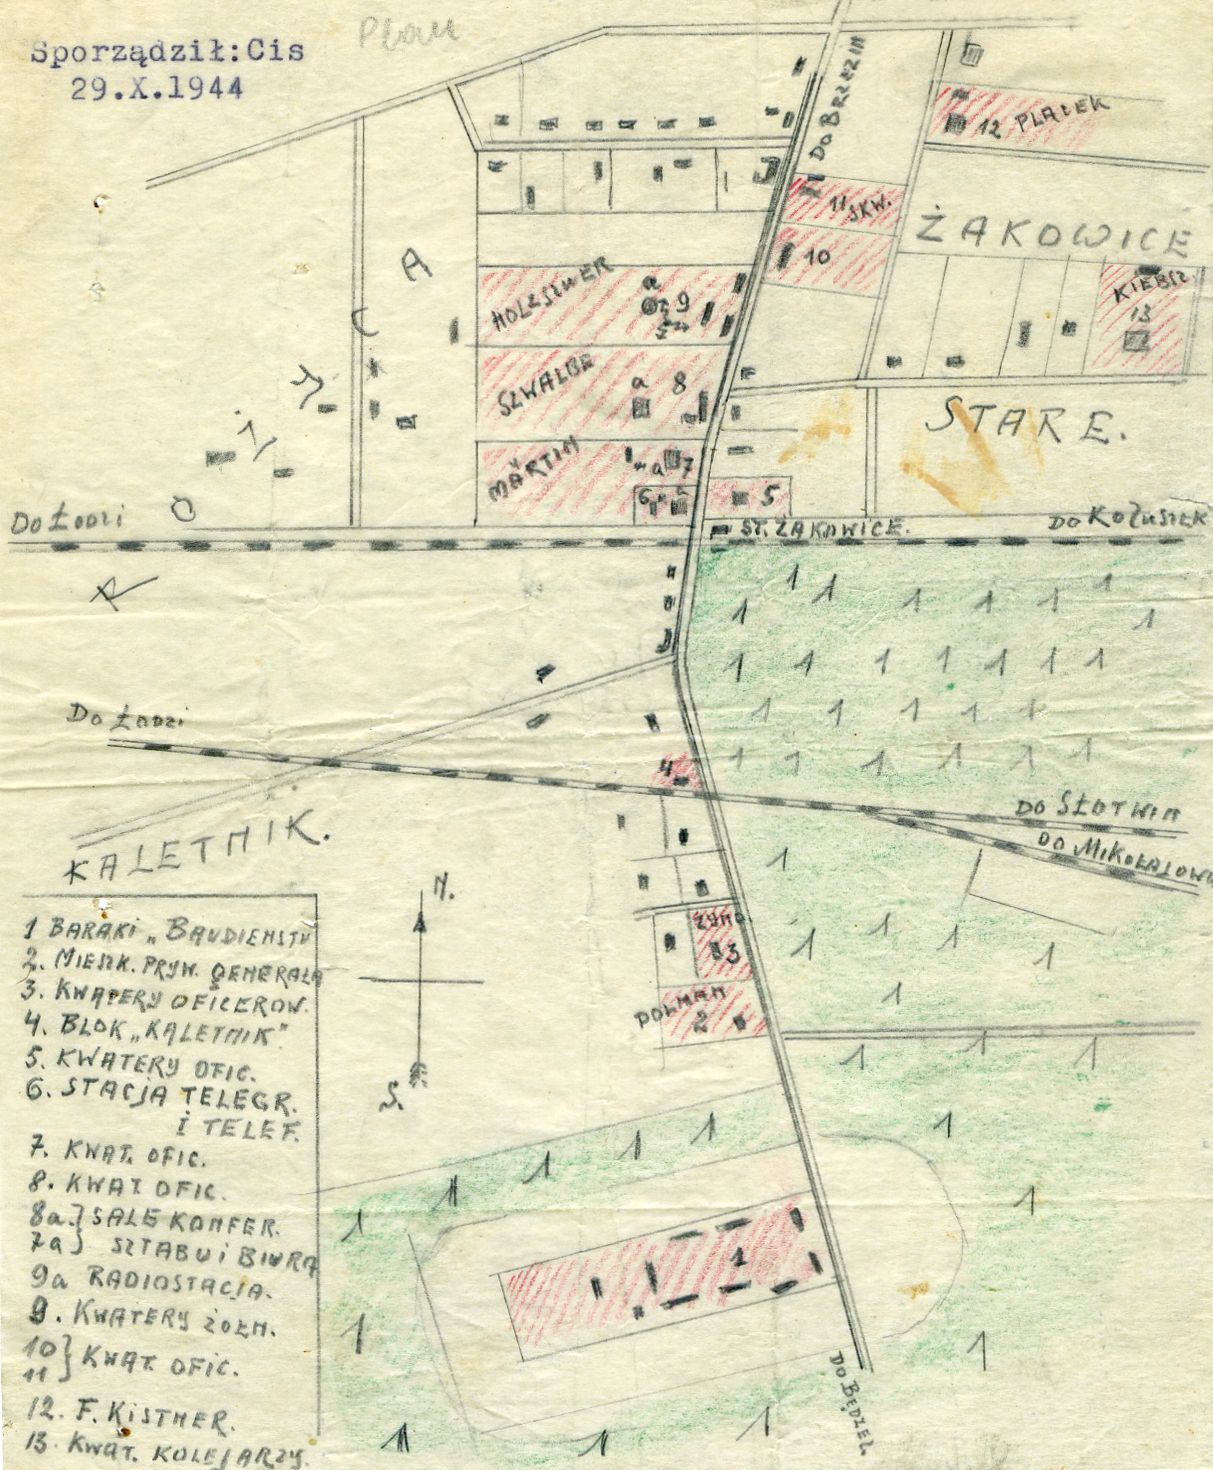 Plan
Sporządził:Cis
29.X.1944
DO BRZEZIN
12 PLACEK
11 SKW.
ŻAKOWICE
10
HOLZSZWER
a
9
KIEBSZ
13
A
SZWALBE
a
8
STARE.
MÄRTIN
a
7
6
a
5
DO ŁODZI
ST. ŻAKOWICE.
DO KOLUSZEK
DO ŁODZI
4
DO SŁOTWIN
DO MIKOŁAJOWA
KALETNIK.
N.
S.
3
POLMAN
2
1
DO BĘDZEL.
1 BARAKI „BAUDIENSTU
2. MIESZK. PRYW. GENERAŁA
3. KWATERY OFICERÓW.
4. BLOK „KALETNIK"
5. KWATERY OFIC.
6. STACJA TELEGR.
I TELEF.
7. KWAT. OFIC.
8. KWAT OFIC.
8a.} SALE KONFER.
7a} SZTABU i BIURA
9a RADIOSTACJA.
9. KWATERY ŻOŁN.
10} KWAT. OFIC.
11
12. F. KISTNER.
13. KWAT. KOLEJARZY.